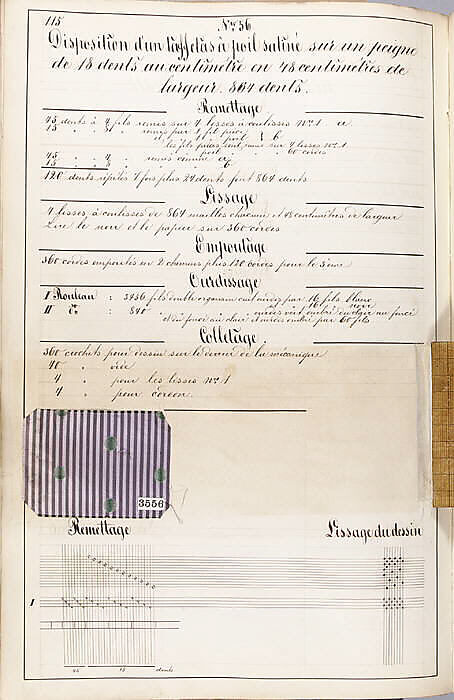 115
Nro 56
Disposition d'un taffetas à poil satiné sur un peigne
de 18 dents au centimètre en 48 centimètres de
largeur. 864 dents.
Remettage
45 dents à 4 fils remis sur 4 lisses à coulisses Nro 1 a
15 remis par 1 fil pièce
et poil } b
les fils pièces sont remis sur 4 lisses Nro 1
poil 60 cordes
45 4 remis comme a
15 b
120 dents répétés 7 fois plus 24 dents font 864 dents
Lissage
4 lisses à coulisses de 864 mailles chacune et 48 centimètres de largeur
Lire le noir et le papier sur 360 cordes
Empoutage
360 cordes empoutés en 2 chemins plus 120 cordes pour le 3ème
Ourdissage
I Rouleau : 3456 fils double organsin cuit ourdis par 16 fils blanc
et 16 noir
II do : 840 ourdis vert ombré du clair au foncé
et du foncé au clair et ourdis ombré par 60 fils
Colletage
360 crochets pour dessin sur le dernier de la mécanique
40
4 pour les lisses Nro 1
4 pour cordon.
3556
Remettage
Lissage du dessin
1
45 15 dents